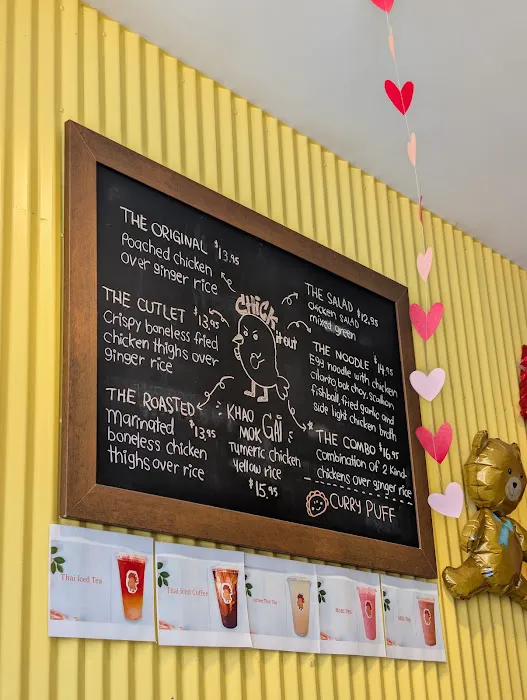 THE ORIGINAL $13.95
Poached chicken
over ginger rice
THE CUTLET $13.95
Crispy boneless fried
chicken thighs over
ginger rice
THE ROASTED $13.95
Marinated
boneless chicken
thighs over rice
CHICK
it out
KHAO
MOK GAI
Tumeric chicken
yellow rice
$15.95
THE SALAD $12.95
chicken SALAD
mixed green
THE NOODLE $14.95
Egg noodle with chicken
cilantro, bok choy, scallion
fishball, fried garlic and
side light chicken broth
THE COMBO $16.95
Combination of 2 kind
chickens over ginger rice
CURRY PUFF
Thai Iced Tea
Thai Iced Coffee
Thai Tea
Milk